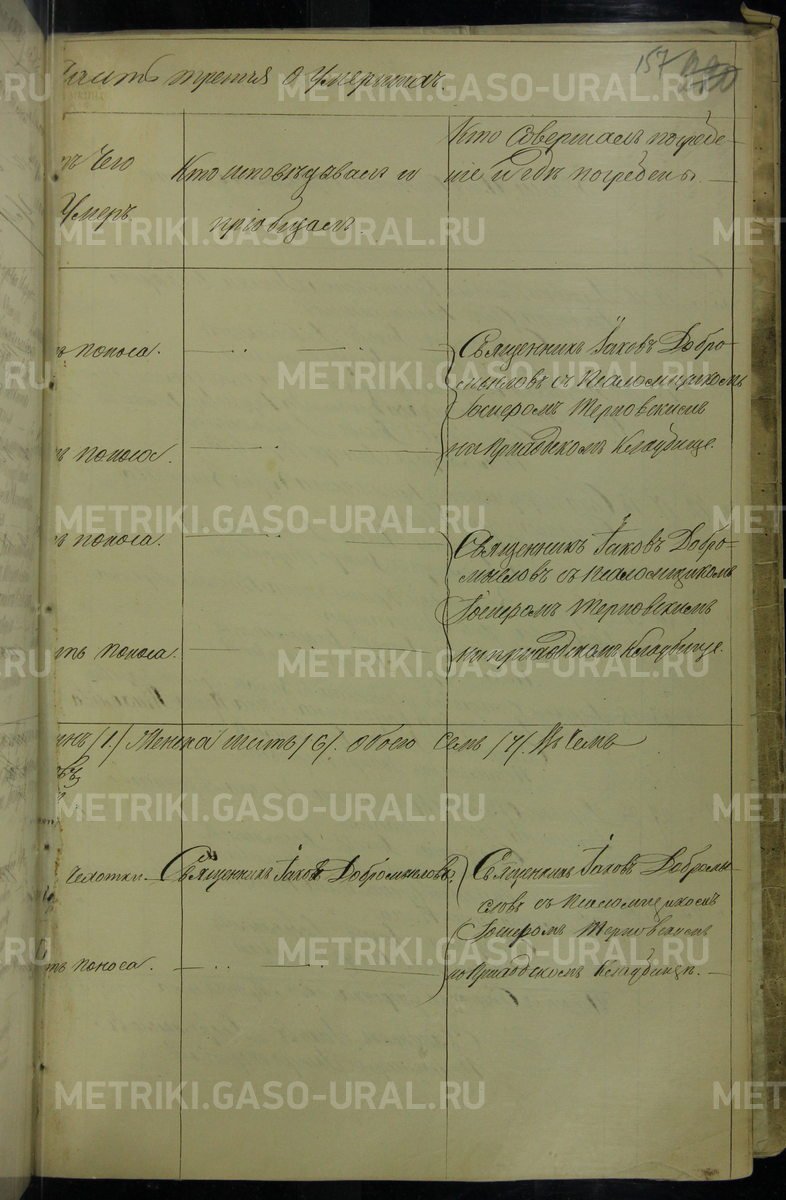 Часть третья о умершихъ.
157
отъ чего
умеръ.
Кто исповѣдывалъ и
пріобщалъ.
Кто совершалъ погребе-
ніе и гдѣ погребены.
отъ поноса.
Священникъ Іаковъ Добро-
мысловъ съ псаломщикомъ
Іосифомъ Терновскимъ
на приходскомъ кладбище.
отъ поноса.
отъ поноса.
Священникъ Іаковъ Добро-
мысловъ съ псаломщикомъ
Іосифомъ Терновскимъ
на приходскомъ кладбище.
отъ поноса.
/1/ Женска шесть /6/. обоего семь /7/.
чахотки.
Священникъ Іаковъ Добромысловъ.
Священникъ Іаковъ Добромы-
словъ съ псаломщикомъ
Іосифомъ Терновскимъ
на приходскомъ кладбищѣ.
отъ поноса.
METRIKI.GASO-URAL.RU